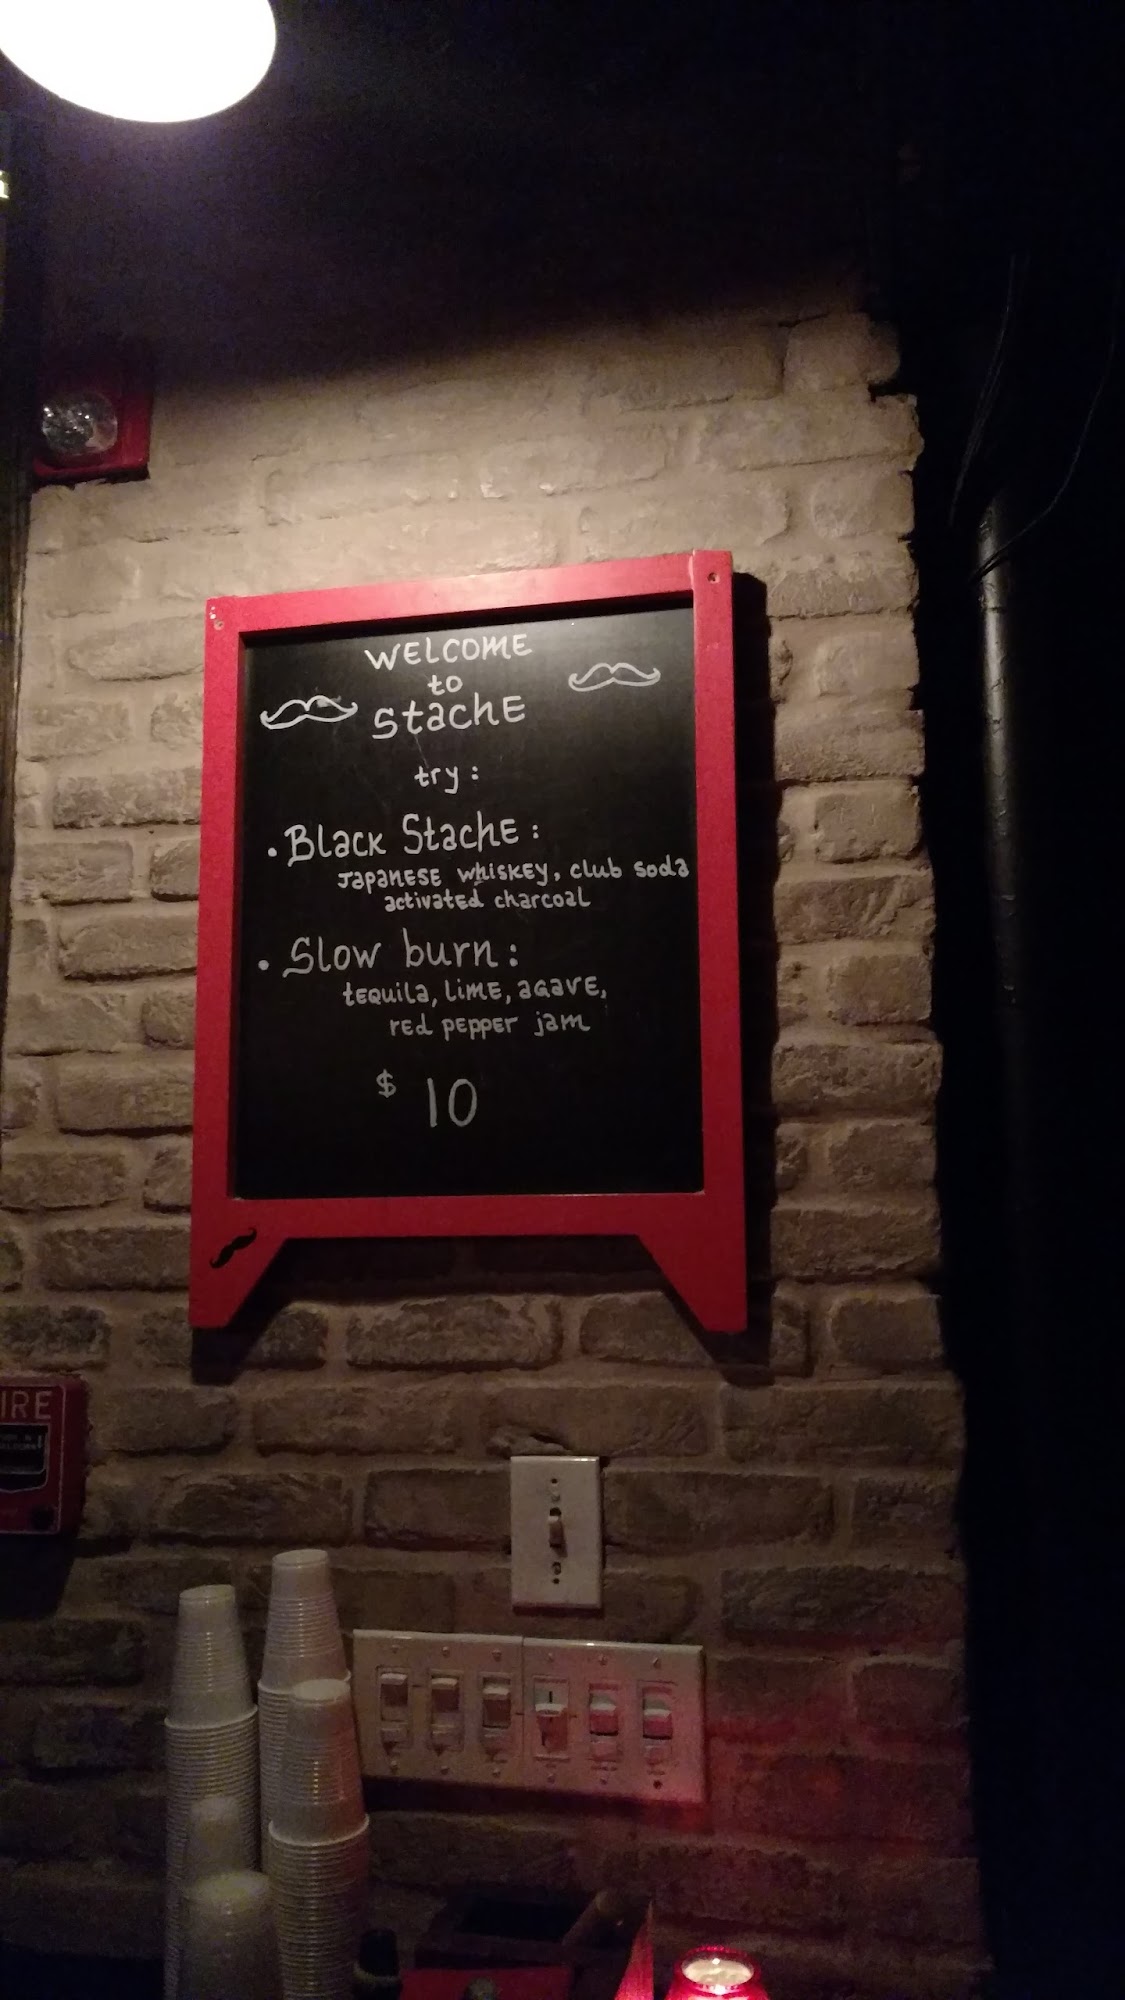 WELCOME
to
StachE
try:
• Black StachE:
JapanEsE whiskey, club soda
activated charcoal
• Slow burn:
tequila, LimE, agavE,
red pepper jam
$ 10
IRE